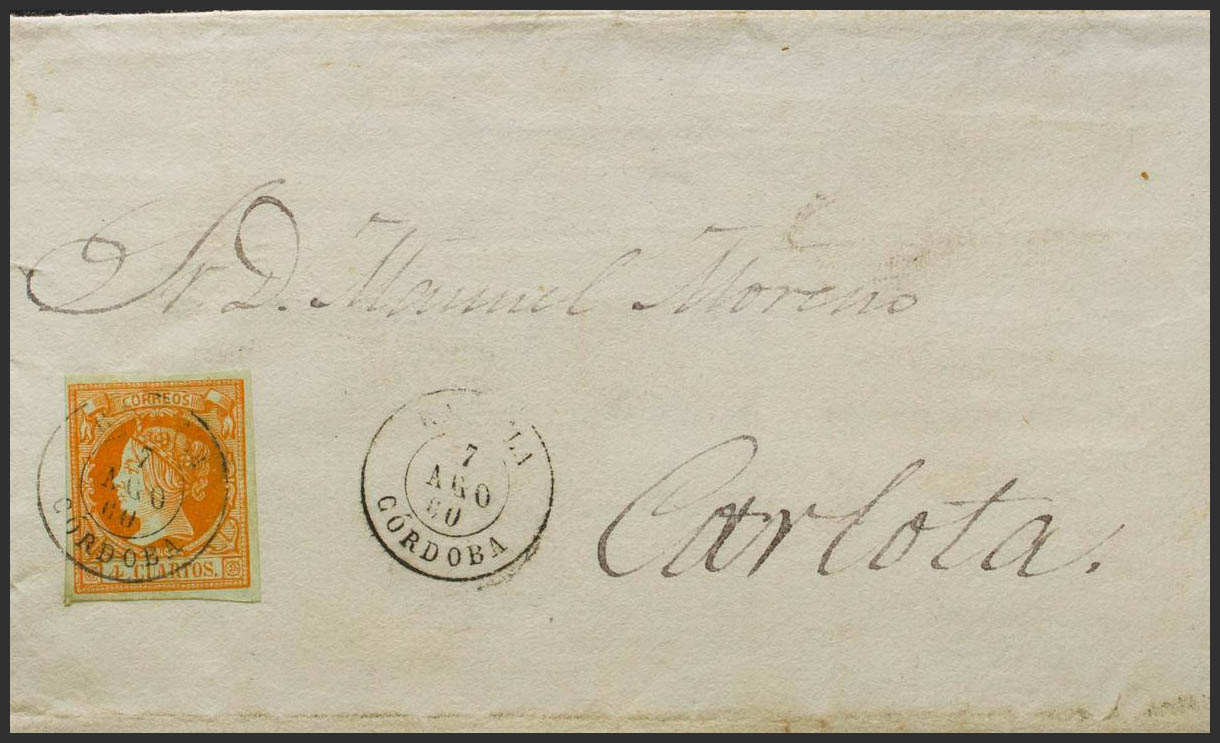 Sr. D. Manuel Moreno
CORREOS
7
AGO
60
CORDOBA
4 CUARTOS.
LA
7
AGO
60
CORDOBA
Carlota.